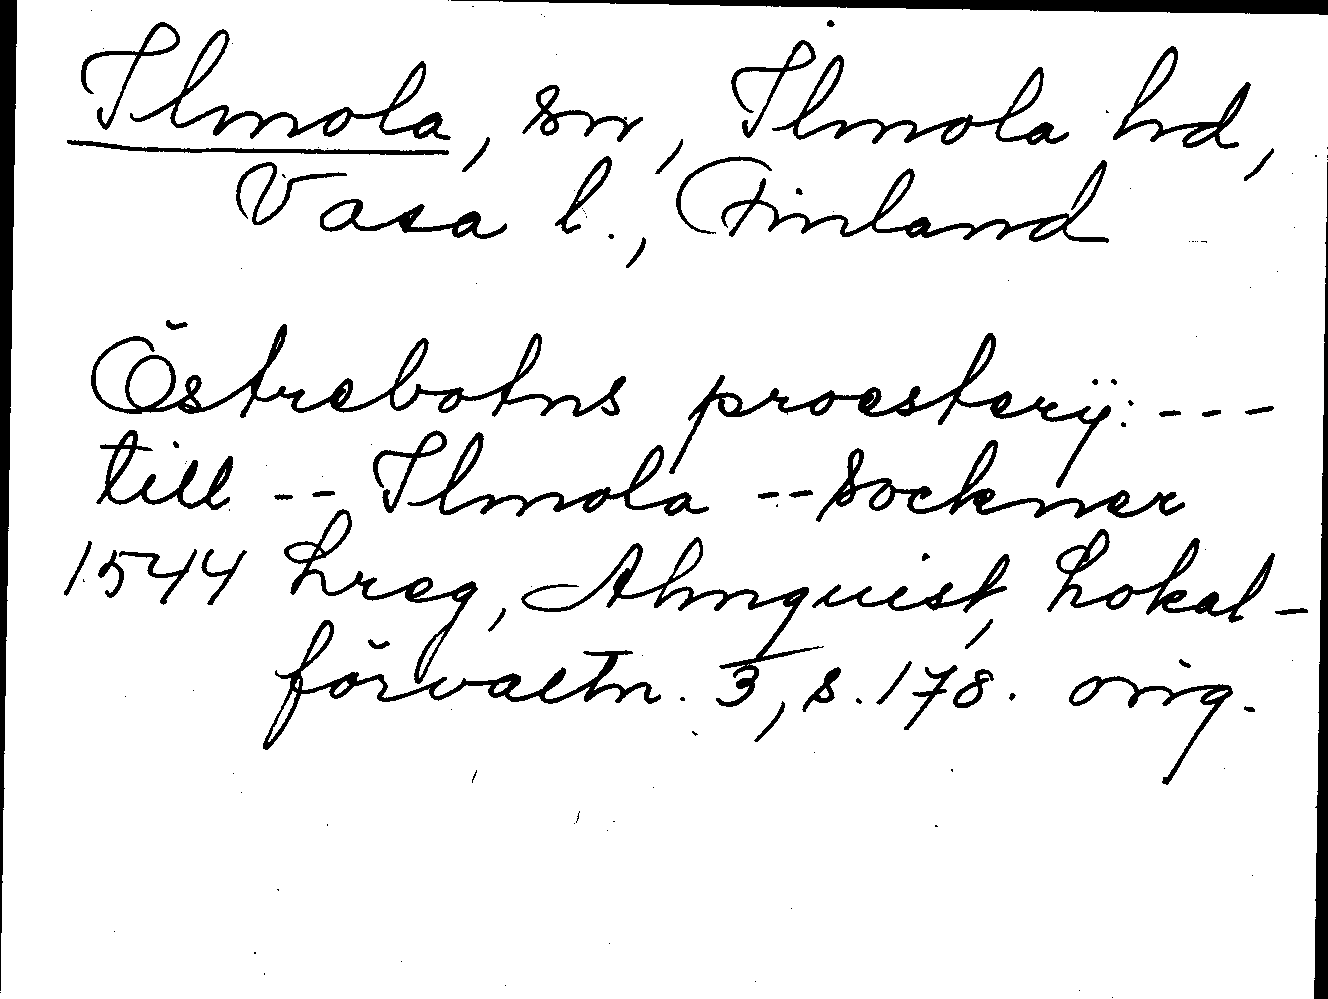 Ilmola, sn, Ilmola hd,
Vasa l., Finland
Östrebotns proesterÿ: ---
till -- Ilmola -- Sockner
1544 Lreg, Almquist, Lokal-
förvaltn. 3, s. 178. orig.